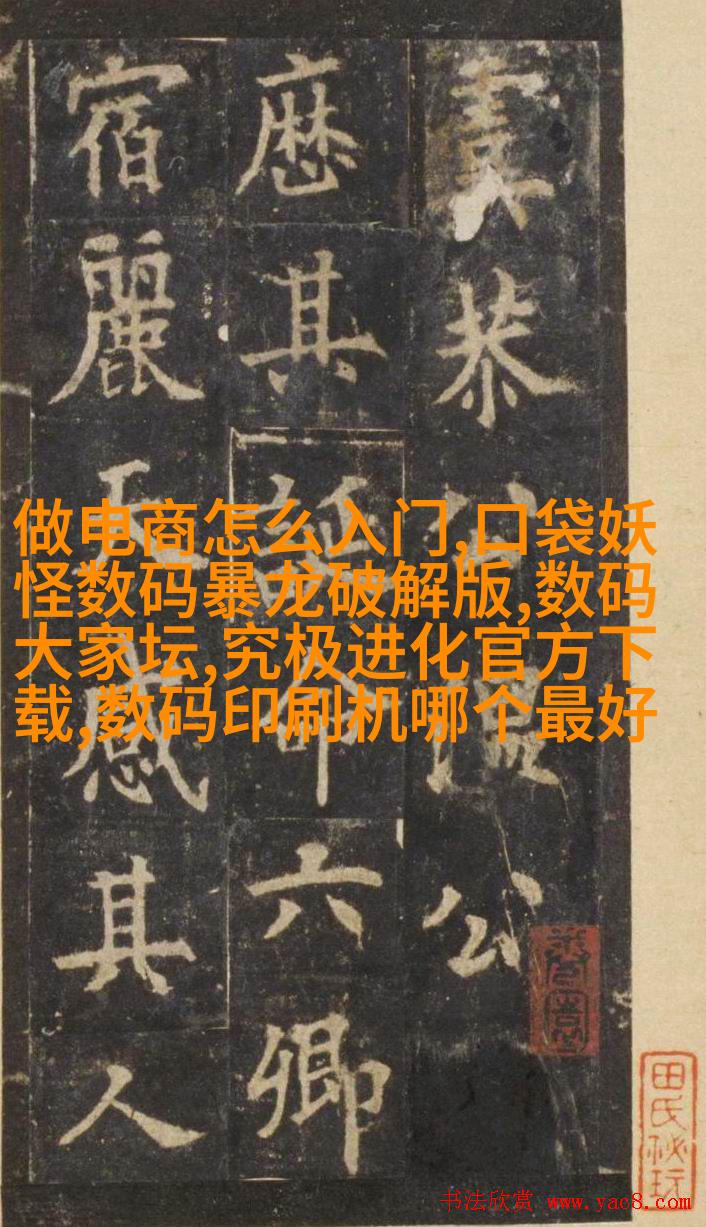 恭公溫公
其誕命六卿
宿麗感其人
做电商怎么入门,口袋妖
怪数码暴龙破解版,数码
大家坛,究极进化官方下
载,数码印刷机哪个最好
田氏秘玩
书法欣赏 www.yac8.com